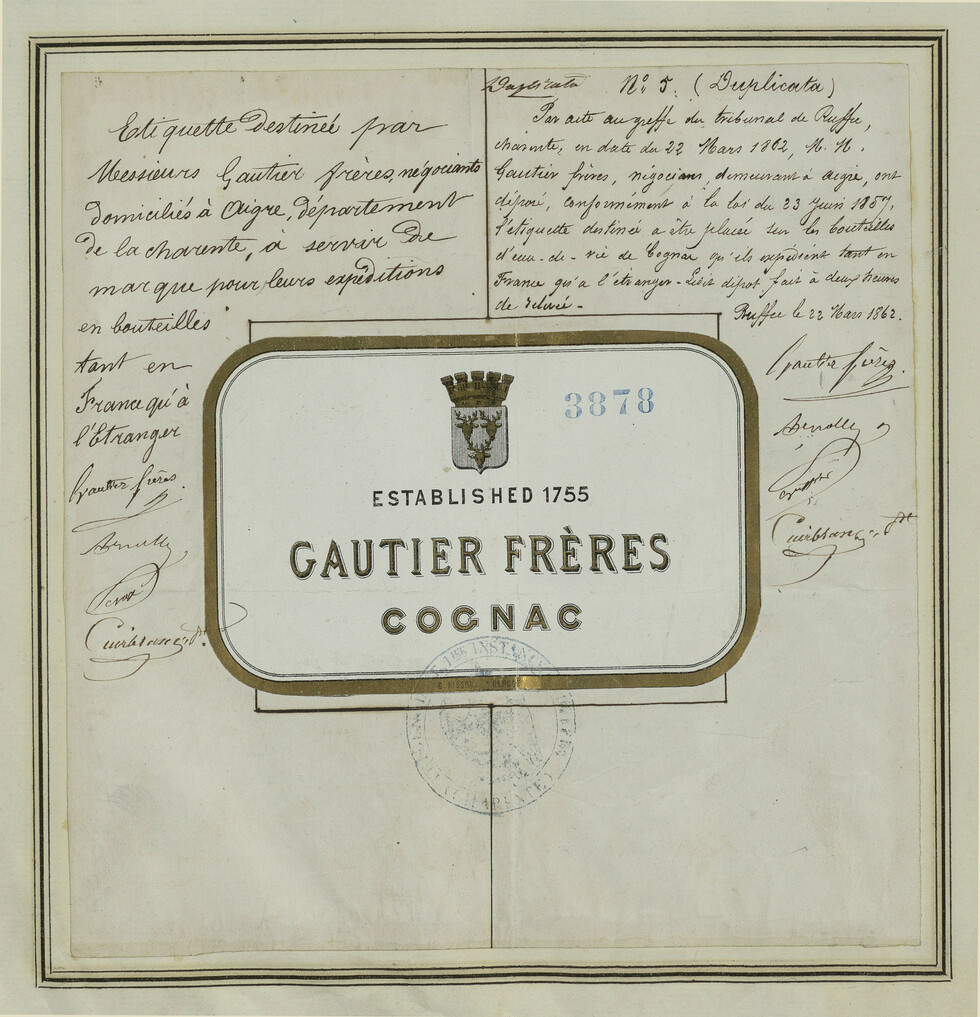 Etiquette destinée par
Messieurs Gautier frères, négociants
domiciliés à Aigre, département
de la charente, à servir de
marque pour leurs expéditions
en bouteilles
tant en
France qu'à
l'Etranger
Gautier frères
Duplicata N° 5. (Duplicata)
Par acte au greffe du tribunal de Ruffec,
charente, en date du 22 Mars 1862, M. M.
Gautier frères, négociants, demeurant à aigre, ont
déposé, conformément à la loi du 23 Juin 1857,
l'étiquette destinée à être placée sur les bouteilles
d'eau-de-vie de Cognac qu'ils expédient tant en
France qu'a l'étranger - Ledit dépot fait à deux heures
de relevée -
Ruffec le 22 Mars 1862.
Gautier frères
3878
ESTABLISHED 1755
GAUTIER FRÈRES
COGNAC
1RE INSTANCE
(CHARENTE)